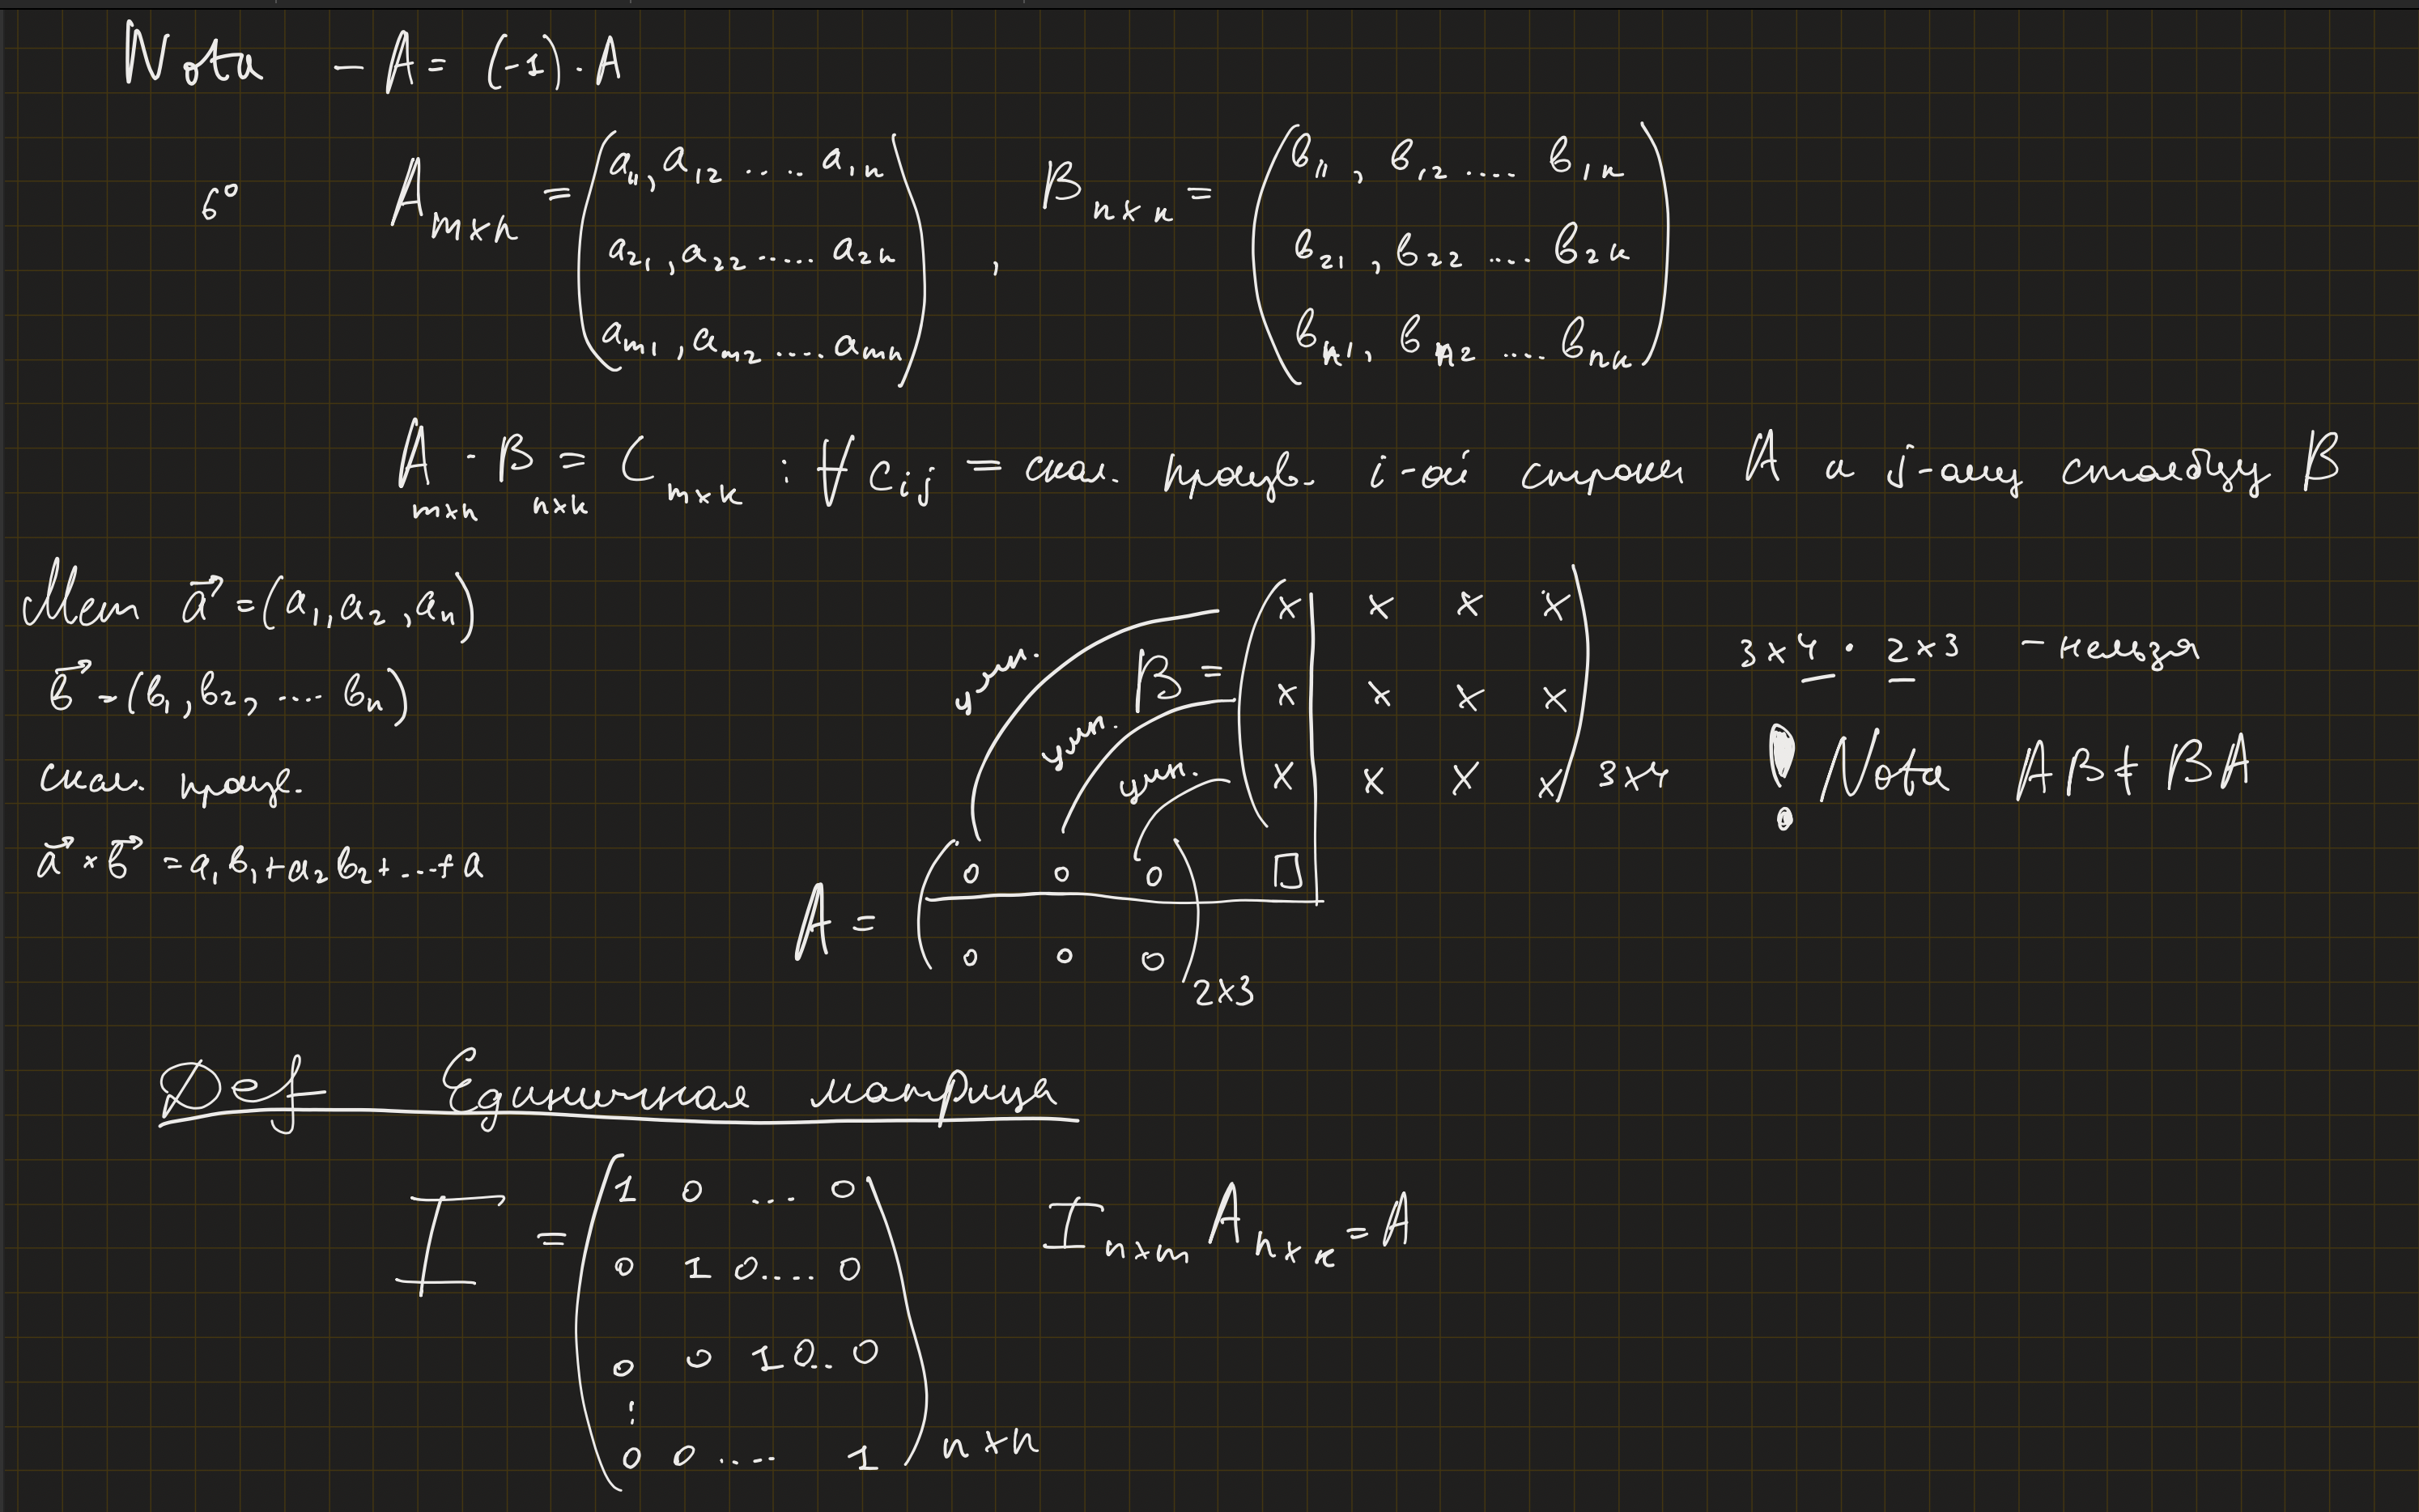 Nota - A = (-1) · A
6° A m×n = ( a11, a12 .... a1n , B n×k = ( b11, b12 .... b1k
a21, a22 ..... a2n b21, b22 .... b2k
am1, am2 .... amn ) bn1, bn2 .... bnk )
A m×n · B n×k = C m×k : ∀ cij = скал. произв. i-ой строки A и j-ому столбцу B
Mem a⃗ = (a1, a2, an)
b⃗ = (b1, b2, .... bn)
скал. произв.
a⃗ × b⃗ = a1b1 + a2b2 + ... + a
умн.
умн.
умн.
B = ( x x x x
x x x x
x x x x ) 3×4
A = ( 0 0 0 □
0 0 0 ) 2×3
3×4 · 2×3 - нельзя
! Nota AB ≠ BA
Def Единичная матрица
I = ( 1 0 ... 0
0 1 0.... 0
0 0 1 0.. 0
⋮
0 0 .... 1 ) n×n
I n×m A n×k = A